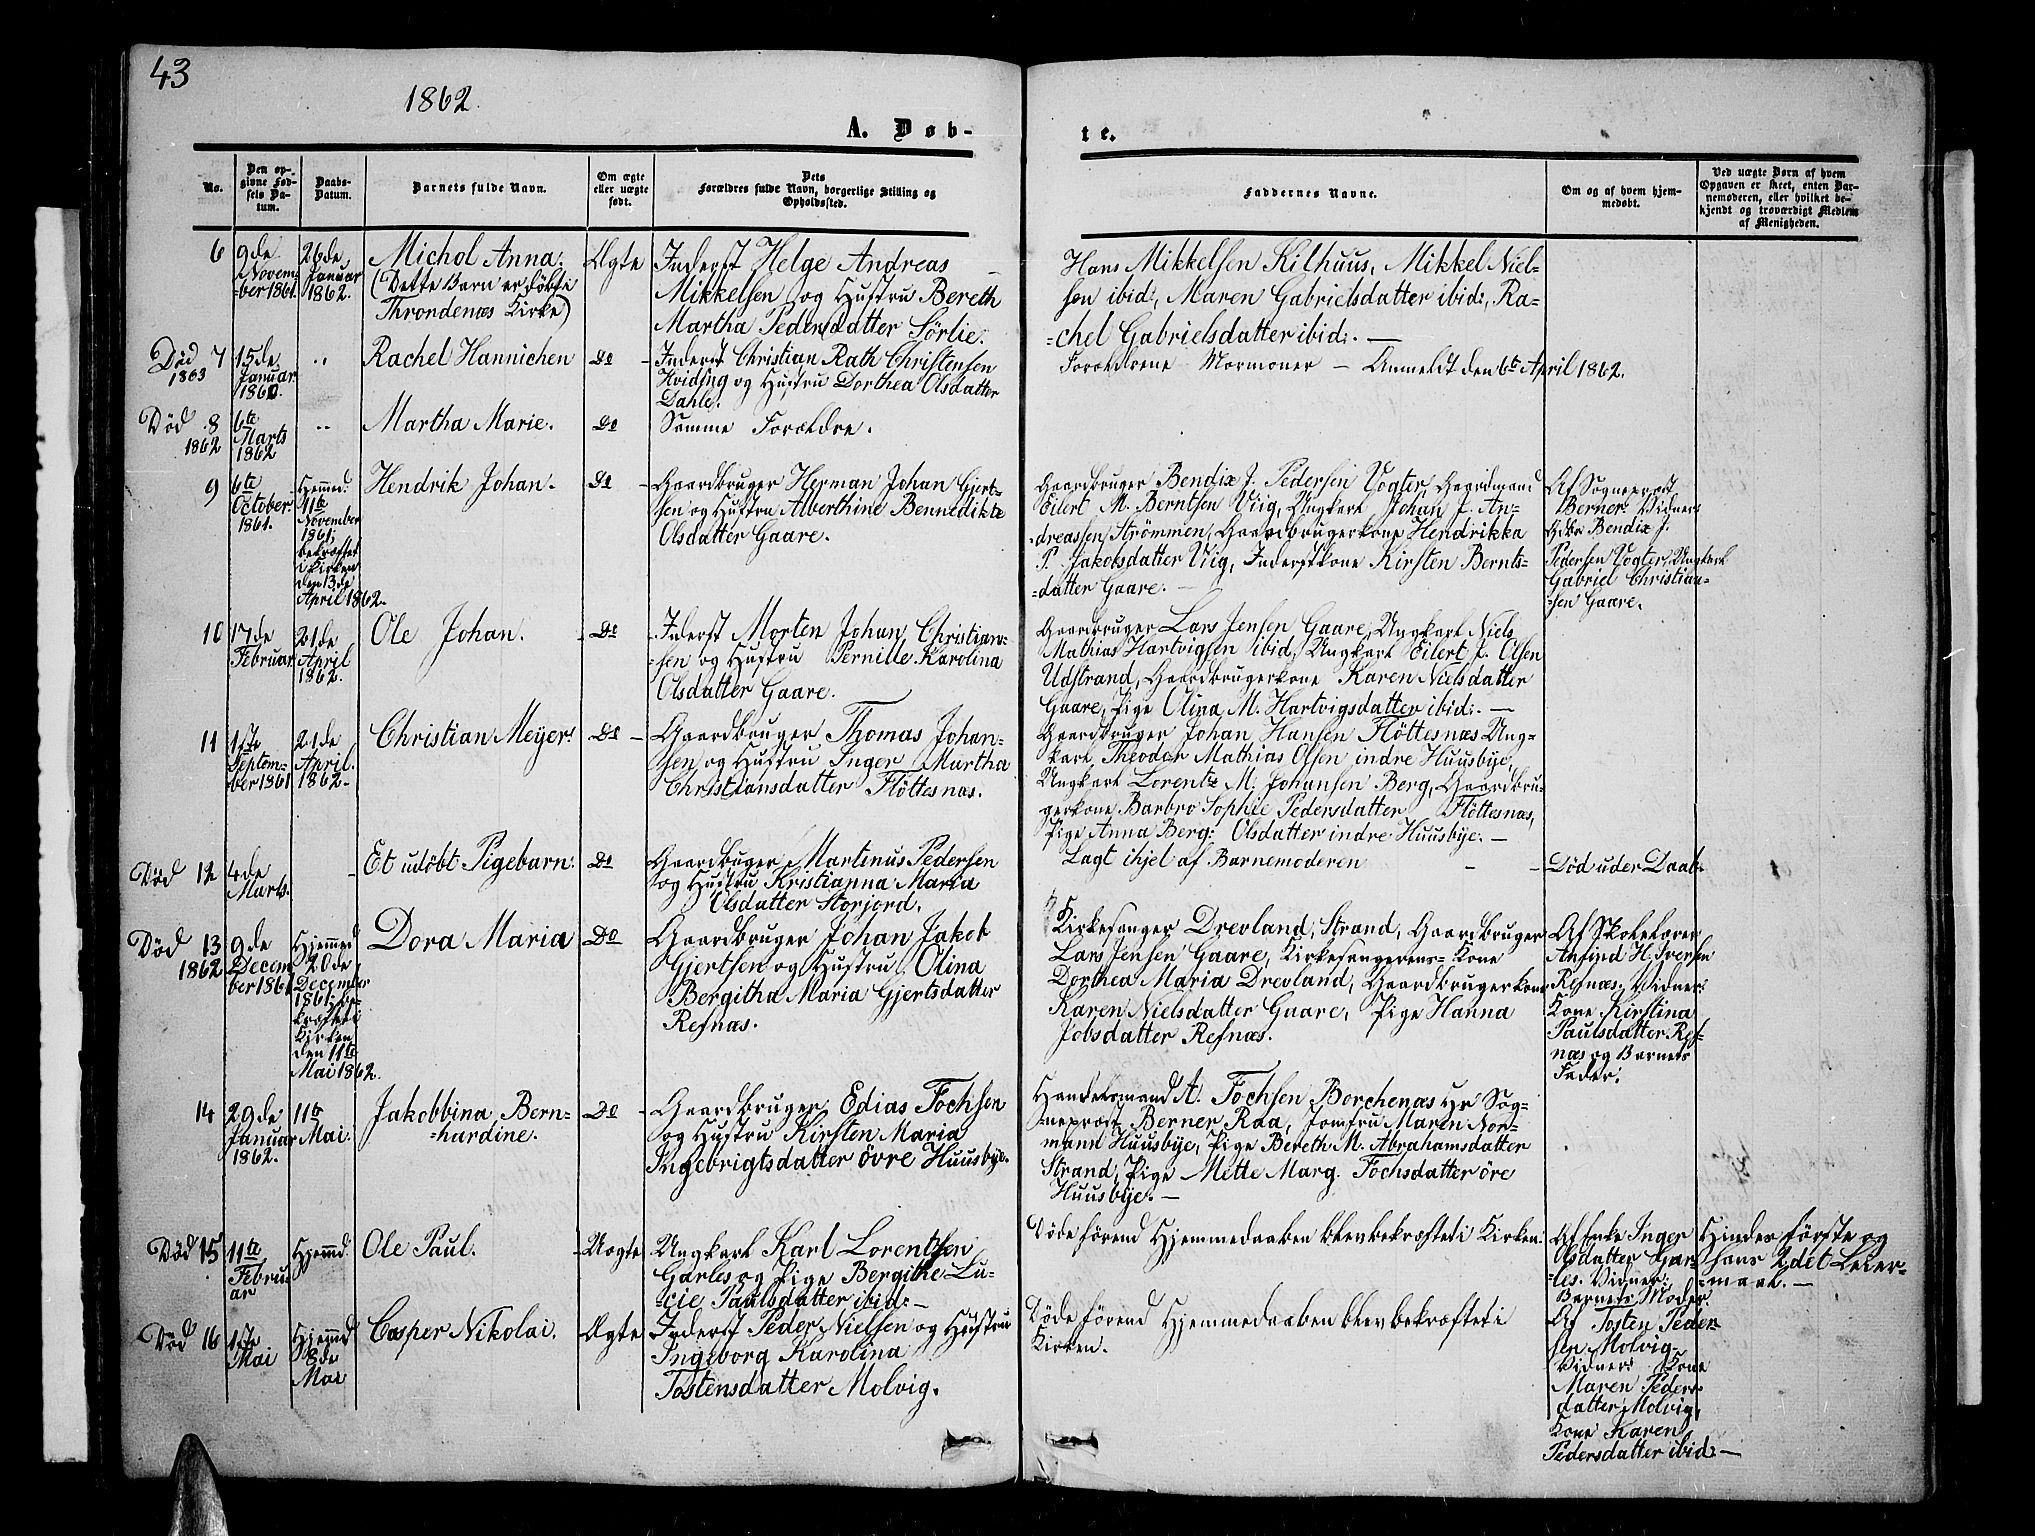 43
1862.
A. Døb-
te.
No.
Den op-
givne Fød-
sels Da-
tum.
Daabs-
Datum.
Barnets fulde Navn.
Om ægte
eller uægte
født.
Dets
Forældres fulde Navn, borgerlige Stilling og
Opholdssted.
Faddernes Navne.
Om og af hvem hjem-
medøbt.
Ved uægte Børn af hvem
Opgaven er skeet, enten Bar-
nemoderen, eller hvilket be-
kjendt og troværdigt Medlem
af Menigheden.
6
9de
Novem-
ber 1861.
26de
Januar
1862.
Michol Anna.
(Dette Barn er döbt i
Throndenæs Kirke)
Ægte
Inderst Helge Andreas
Mikkelsen og Hustru Bereth
Martha Pedersdatter Sörlie.
Hans Mikkelsen Kilhuus, Mikkel Niel-
sen ibid:, Maren Gabrielsdatter ibid:, Ra-
=chel Gabrielsdatter ibid:. —
Död 7
1863
15de
Januar
1860.
"
Rachel Hannichen
Do
Inderst Christian Rath Christensen
Hviding og Hustru Dorthea Olsdatter
Dahle.
Forældrene Mormoner — Anmeldt den 6te April 1862.
Död 8
1862
6te
Marts
1862
"
Martha Marie.
Do
Samme Forældre.
9
6te
October
1861.
Hjemmed:
11te
November
1861;
bekræftet
i Kirken
den 13de
April 1862.
Hendrik Johan.
Do
Gaardbruger Herman Johan Gjert-
sen og Hustru Alberthine Bennedikte
Olsdatter Gaare.
Gaardbruger Bendix J. Pedersen Vogter, Gaardmand
Eilert M. Berntsen Viig, Ungkarl Johan J. An-
dreassen Strömmen, Gaardbrugerkone Hendrikka
P. Jakobsdatter Viig, Inderstkone Kirsten Bernts-
=datter Gaare. —
Af Sogneprost
Berner. Vidner:
Gdbr Bendix J.
Pedersen Vogter, Ungkarl
Gabriel Christian-
=sen Gaare.
10
17de
Februar
21de
April
1862.
Ole Johan.
Do
Inderst Morten Johan Christian-
=sen og Hustru Pernille Karolina
Olsdatter Gaare.
Gaardbruger Lars Jensen Gaare, Ungkarl Niels
Mathias Hartvigsen ibid, Ungkarl Eilert J. Olsen
Udstrand, Gaardbrugerkone Karen Nielsdatter
Gaare, Pige Olina M. Hartvigsdatter ibid:. —
11
1ste
Septem-
ber 1861
21de
April.
1862.
Christian Meyer.
Do
Gaardbruger Thomas Johan-
sen og Hustru Inger Martha
Christiansdatter Flöttesnæs.
Gaardbruger Johan Hansen Flöttesnæs Ung-
karl, Theodor Mathias Olsen indre Huusbye,
Ungkarl Lorentz M. Johansen Berg, Gaardbru-
gerkone Barbro Sophie Pedersdatter Flöttesnæs,
Pige Anna Berg: Olsdatter indre Huusbye. —
Död 12
4de
Marts.
Et udöbt Pigebarn.
Do
Gaardbuger Martinus Pedersen
og Hustru Kristianna Maria
Olsdatter Storjord.
Lagt ihjel af Barnemoderen
Död uder Daab.
Död 13
1862
9de
Decem
ber 1861
Hjemmed
20de
December
1861; be-
kræftet i
Kirken
den 11te
Mai 1862.
Dora Maria
Do
Gaardbruger Johan Jakob
Gjertsen og Hustru Olina
Bergitha Maria Gjertsdatter
Refnæs.
Kirkesanger Drevland, Strand, Gaardbruger
Lars Jensen Gaare, Kirkesangerens Kone
Dorthea Maria Drevland, Gaardbrugerkone
Karen Nielsdatter Gaare, Pige Hanna
Jobsdatter Refnæs.
Af Skolelærer
Anfind H. Iversen
Refnæs. Vidner:
Kone Kirstina
Paulsdatter Ref-
næs og Barnets
Fader.
14
29de
Januar
1862.
11te
Mai.
Jakobbina Bern-
=hardine.
Do
Gaardbruger Edias Fochsen
og Hustru Kirsten Maria
Ingebrigtsdatter övre Huusbye.
Handelsmand A. Fochsen Borchenæs Hr Sog-
neprost Berner Raa, Jomfru Maren Nor-
mann Huusbye, Pige Bereth M. Abrahamsdatter
Strand, Pige Mette Marg. Fochsdatter öre
Huusbye. —
Död 15
11te
Febru-
ar
Hjemmd.
Ole Paul.
Uægte
Ungkarl Karl Lorentsen
Garles og Pige Bergithe Lu-
=cie Paulsdatter ibid: —
Döde förend Hjemmedaaben blev bekræftet i Kirken.
Af Enke Inger
Olsdatter Gar-
=les. Vidner:
Barnets Moder.
Hendes förste og
hans 2det Leier-
=maal. —
Död 16
1ste
Mai
Hjemmd
8de
Mai
Casper Nikolai.
Ægte
Inderst Peder Nielsen og Hustru
Ingeborg Karolina
Tostensdatter Molvig.
Döde förend Hjemmedaaben blev bekræftet i
Kirken.
Af Tosten Peder-
sen Molvig.
Vidner: Kone
Maren Peders-
datter Molvig,
Kone Karen
Pedersdatter ibid: —